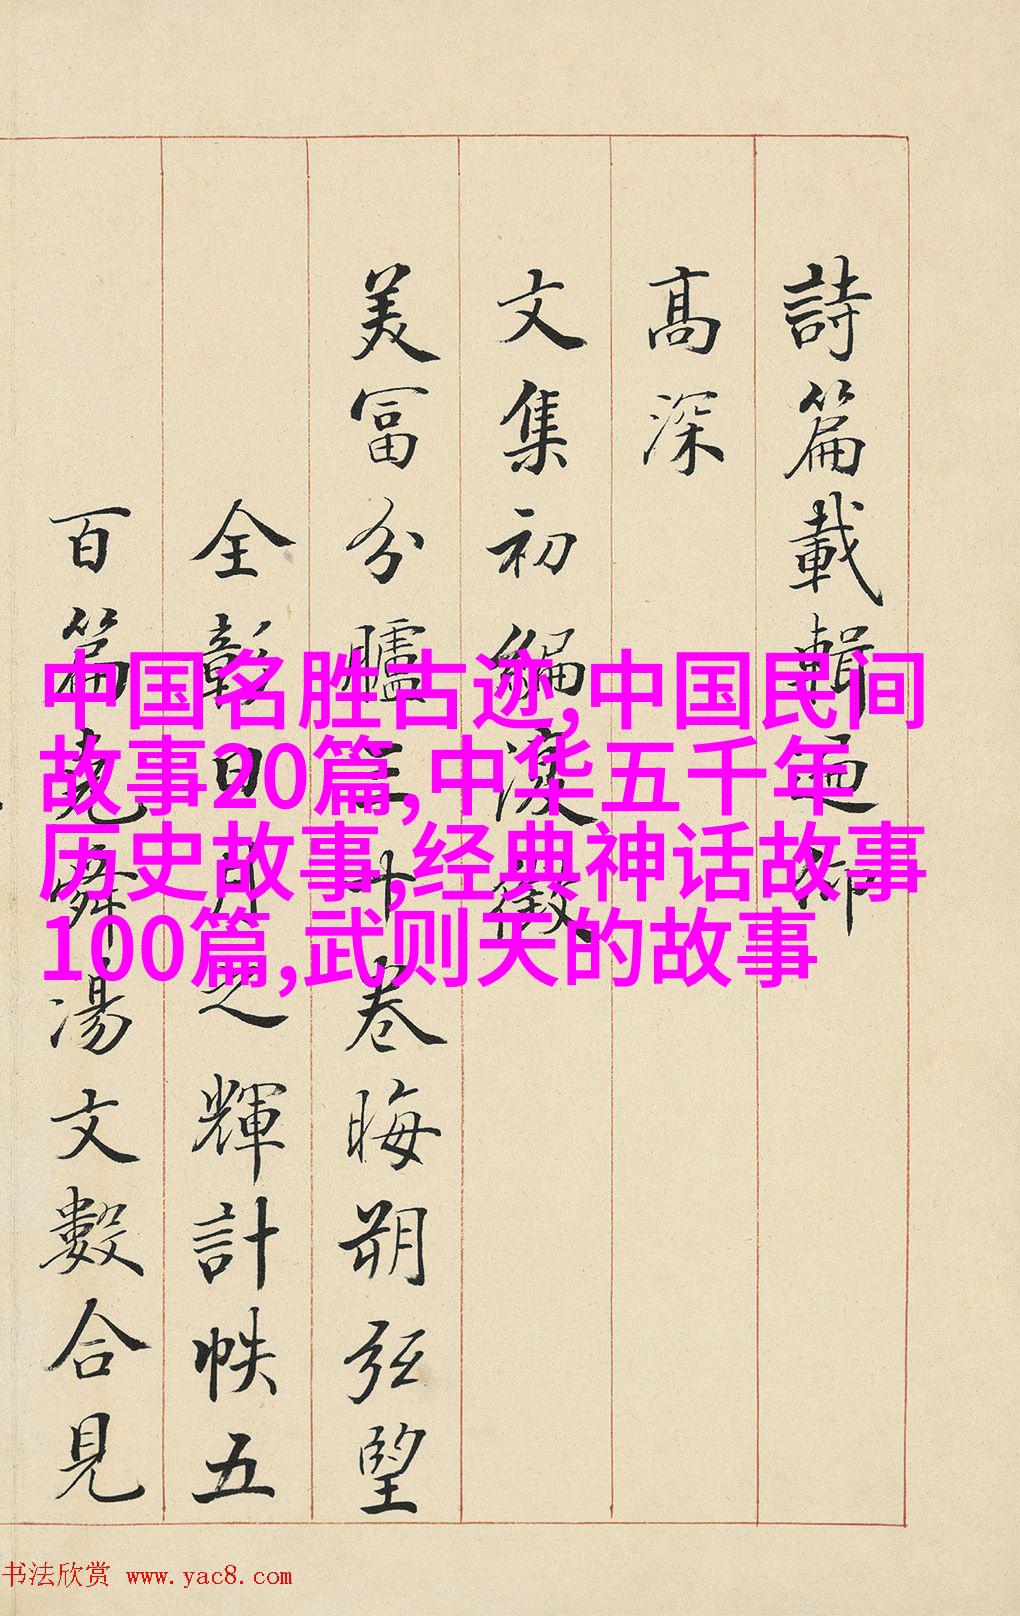 詩篇載輯迴仰
高深
文集初編復徵
美富分臚三十卷晦朔弦望
全彰日月之輝計帙五
百篇堯舜湯文數合見
中国名胜古迹,中国民间
故事20篇,中华五千年
历史故事,经典神话故事
100篇,武则天的故事
书法欣赏 www.yac8.com